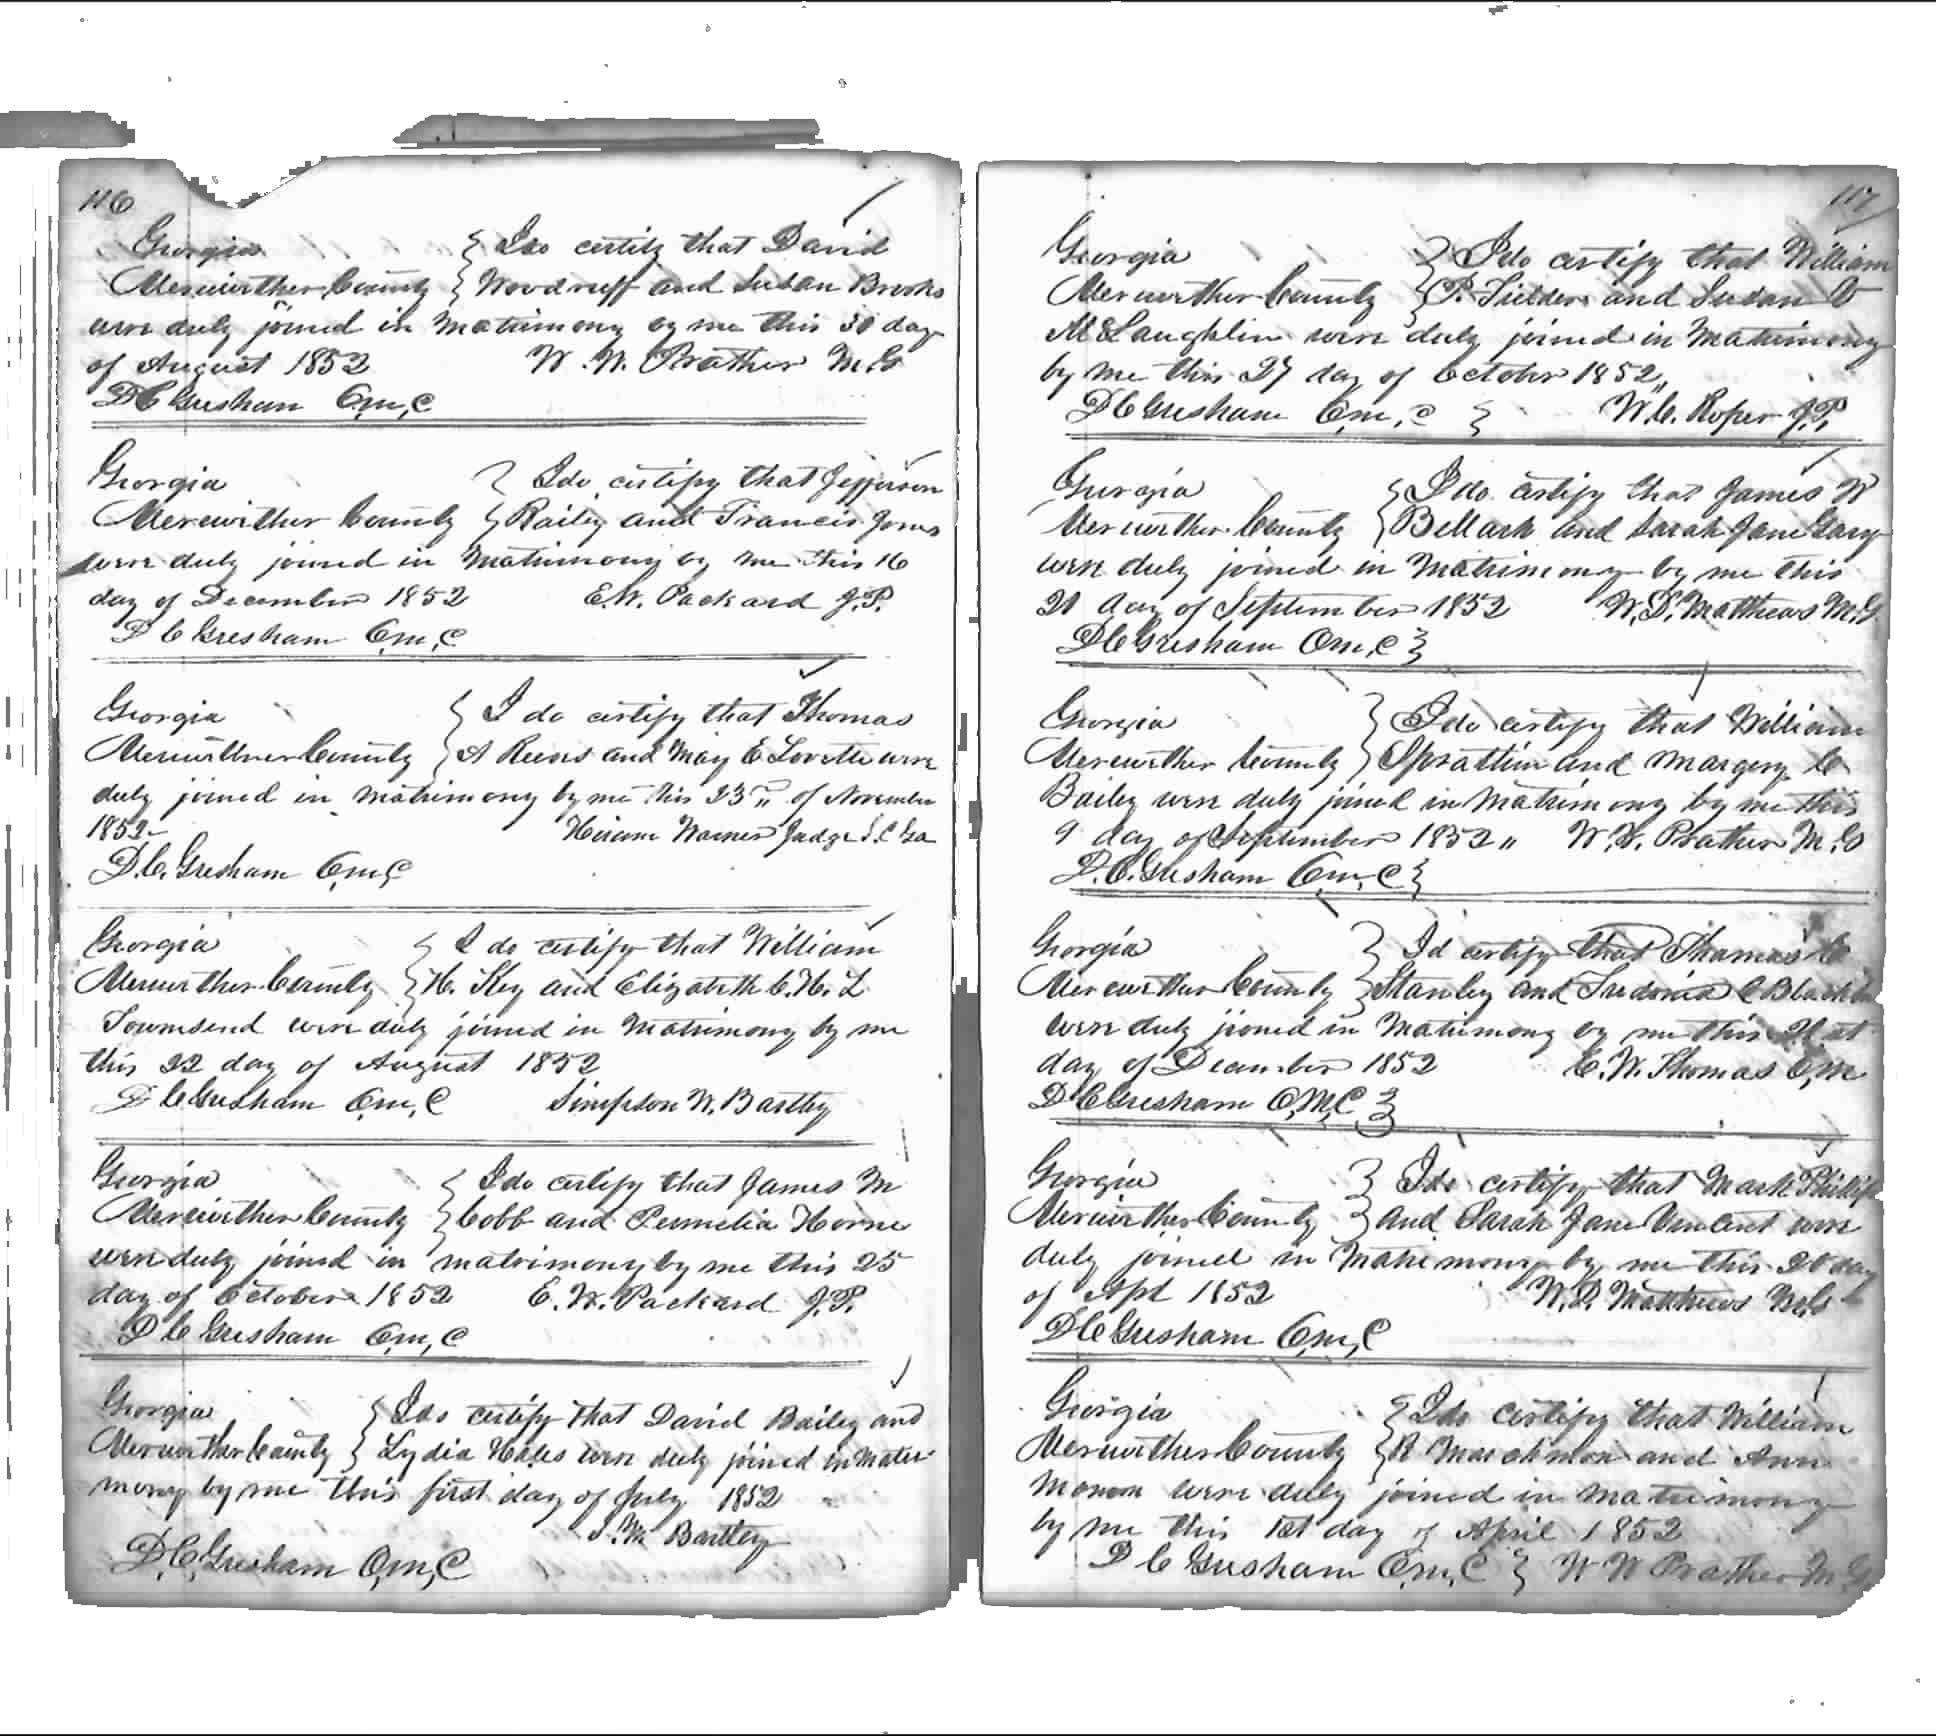 116
Georgia } I do certify that David
Meriwether County } Woodruff and Susan Brooks
were duly joined in Matrimony by me this 30 day
of August 1852 W. W. Prather M.G
D C Gresham C,m,C
Georgia } I do certify that Jefferson
Meriwether County } Railey and Francis Jones
were duly joined in Matrimony by me this 16
day of December 1852 E.W. Packard J.P.
D C Gresham C,m,C
Georgia } I do certify that Thomas
Meriwether County } A Reeves and Mary E Lovette were
duly joined in Matrimony by me this 23 " of November
1852 Hiram Warner Judge S.C Ga
D.C. Gresham C,m,C
Georgia } I do certify that William
Meriwether County } H. Key and Elizabeth C. H. L
Townsend were duly joined in Matrimony by me
this 22 day of August 1852
D C Gresham C,m,C Simpson W. Bartley
Georgia } I do certify that James M
Meriwether County } Cobb and Permelia Horne
were duly joined in matrimony by me this 25
day of October 1852 E. W. Packard J.P.
D C Gresham C,m,C
Georgia } I do certify that David Bailey and
Meriwether County } Lydia were duly joined in Matri-
mony by me this first day of July 1852
Bartley
D,C,Gresham C,m,C
117
Georgia } I do certify that William
Meriwether County } P. Fielder and Susan V
McLaughlin were duly joined in Matrimony
by me this 27 day of October 1852 "
D C Gresham C,m,C } W.C. Roper J.P.
Georgia } I do certify that James W
Meriwether County } Bellark and Sarah Jane Gary
were duly joined in Matrimony by me this
day of September 1852 W.D. Matthews M.G.
D C Gresham C,m,C }
Georgia } I do certify that William
Meriwether County } Sprattin and Margery C
Bailey were duly joined in Matrimony by me this
9 day of September 1852 " W. W. Prather M.G
D. C. Gresham C,m,C }
Georgia } I d certify that Thomas C
Meriwether County } Stanley and C
were duly jioned in Matrimony by me this 21st
day of December 1852 C. W. Thomas
D C Gresham C,M,C }
Georgia } I do certify that Mark Phillips
Meriwether County } and Sarah Jane Vincent were
duly joined in Matrimony by me this 20 day
of 1852 W. D. Matthews M.G
D C Gresham C,m,C
Georgia } I do certify that William
Meriwether County } R Marchmon and Ann
were duly joined in matrimony
by me this 1st day of April 1852
D C Gresham C,m,C } W W Prather M G